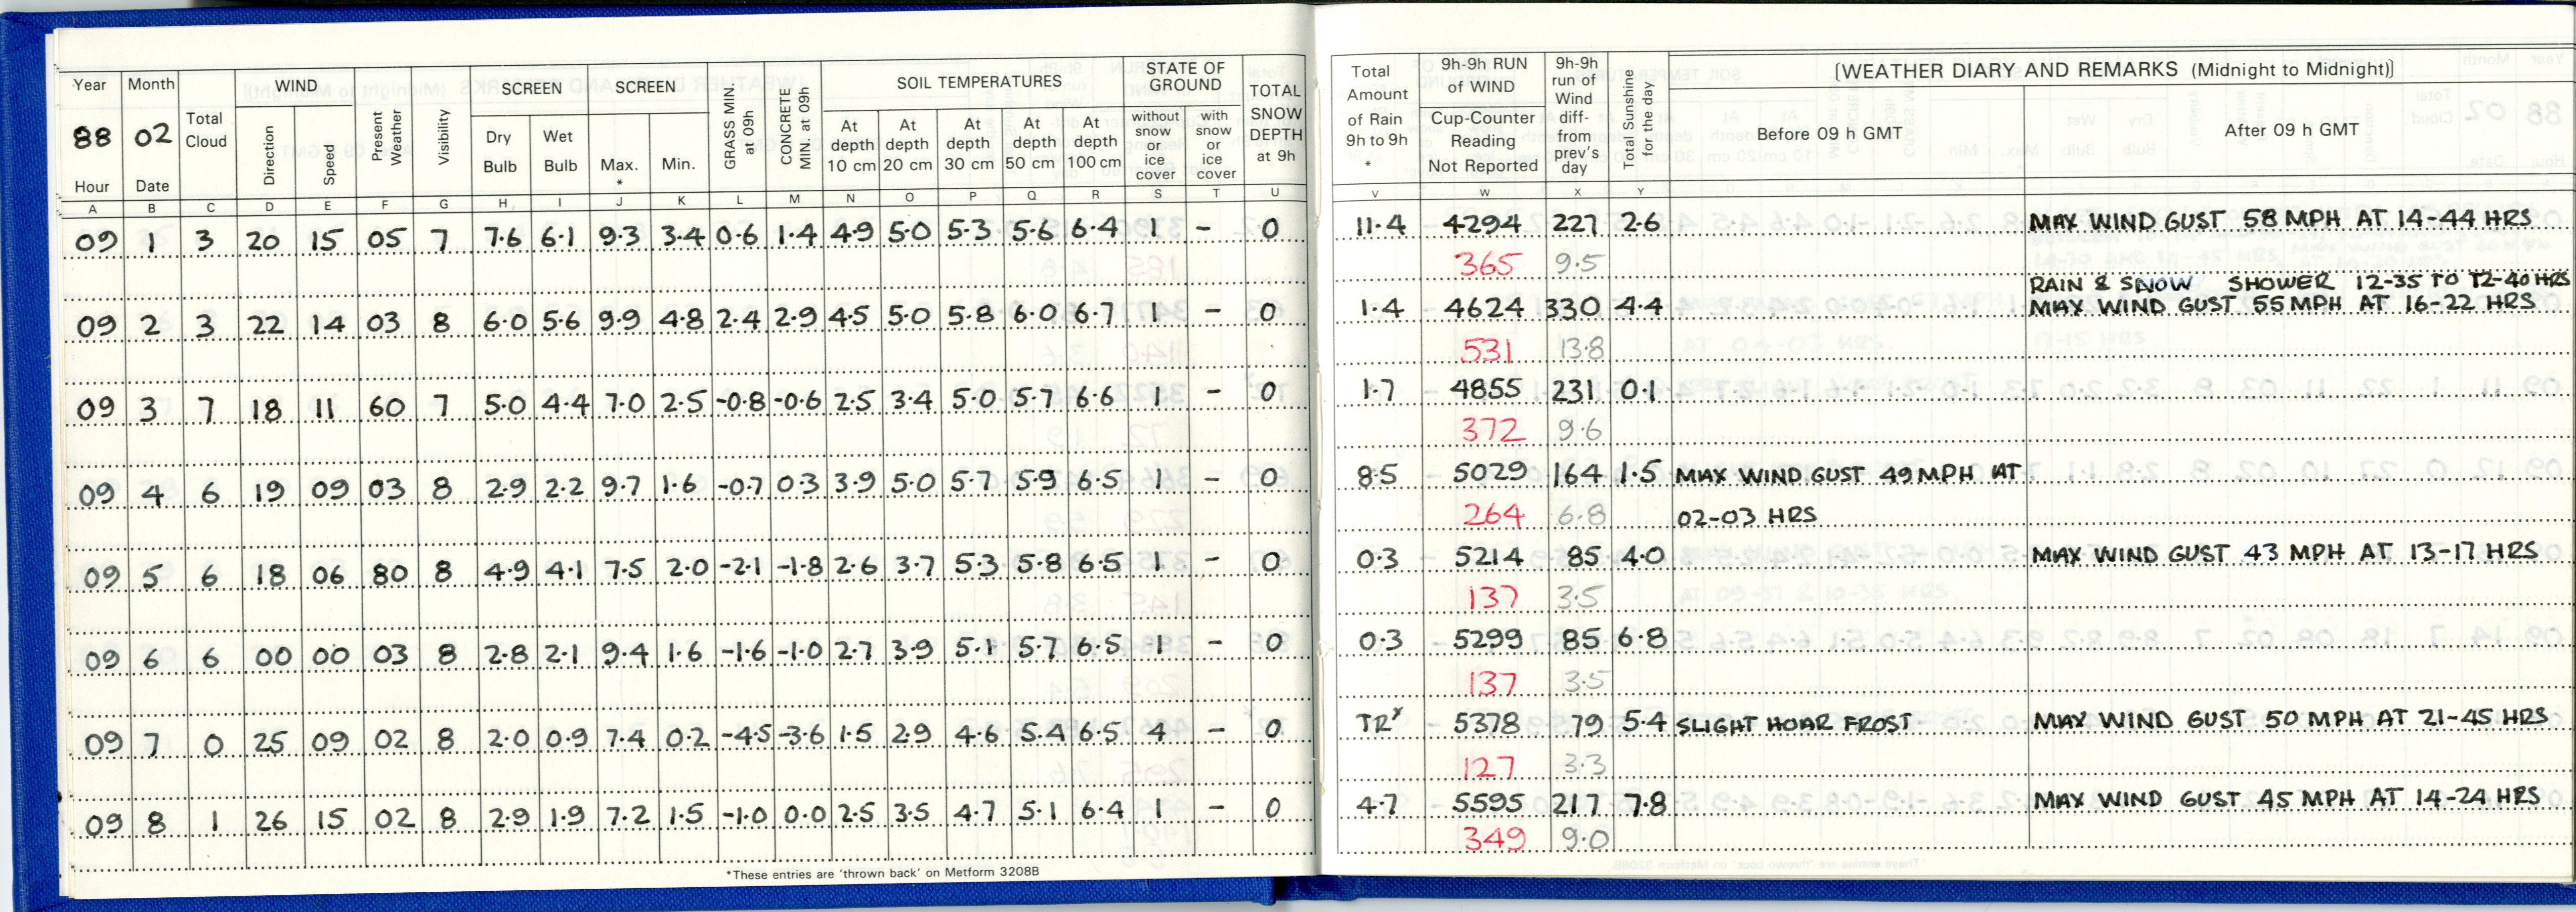 Year Month Total Cloud WIND Present Weather Visibility SCREEN SCREEN GRASS MIN. at 09h CONCRETE MIN. at 09h SOIL TEMPERATURES STATE OF GROUND TOTAL SNOW DEPTH at 9h
88 02 Direction Speed Dry Bulb Wet Bulb Max. * Min. At depth 10 cm At depth 20 cm At depth 30 cm At depth 50 cm At depth 100 cm without snow or ice cover with snow or ice cover
Hour Date
A B C D E F G H I J K L M N O P Q R S T U
09 1 3 20 15 05 7 7.6 6.1 9.3 3.4 0.6 1.4 4.9 5.0 5.3 5.6 6.4 1 - 0
09 2 3 22 14 03 8 6.0 5.6 9.9 4.8 2.4 2.9 4.5 5.0 5.8 6.0 6.7 1 - 0
09 3 7 18 11 60 7 5.0 4.4 7.0 2.5 -0.8 -0.6 2.5 3.4 5.0 5.7 6.6 1 - 0
09 4 6 19 09 03 8 2.9 2.2 9.7 1.6 -0.7 0.3 3.9 5.0 5.7 5.9 6.5 1 - 0
09 5 6 18 06 80 8 4.9 4.1 7.5 2.0 -2.1 -1.8 2.6 3.7 5.3 5.8 6.5 1 - 0
09 6 6 00 00 03 8 2.8 2.1 9.4 1.6 -1.6 -1.0 2.7 3.9 5.1 5.7 6.5 1 - 0
09 7 0 25 09 02 8 2.0 0.9 7.4 0.2 -4.5 -3.6 1.5 2.9 4.6 5.4 6.5 4 - 0
09 8 1 26 15 02 8 2.9 1.9 7.2 1.5 -1.0 0.0 2.5 3.5 4.7 5.1 6.4 1 - 0
*These entries are 'thrown back' on Metform 3208B
Total Amount of Rain 9h to 9h * 9h-9h RUN of WIND Cup-Counter Reading Not Reported 9h-9h run of Wind diff- from prev's day Total Sunshine for the day [WEATHER DIARY AND REMARKS (Midnight to Midnight)]
Before 09 h GMT After 09 h GMT
V W X Y
11.4 4294 227 2.6 MAX WIND GUST 58 MPH AT 14-44 HRS
365 9.5
RAIN & SNOW SHOWER 12-35 TO 12-40 HRS
1.4 4624 330 4.4 MAX WIND GUST 55 MPH AT 16-22 HRS
531 13.8
1.7 4855 231 0.1
372 9.6
8.5 5029 164 1.5 MAX WIND GUST 49 MPH AT
264 6.8 02-03 HRS
0.3 5214 85 4.0 MAX WIND GUST 43 MPH AT 13-17 HRS
137 3.5
0.3 5299 85 6.8
137 3.5
TRx 5378 79 5.4 SLIGHT HOAR FROST. MAX WIND GUST 50 MPH AT 21-45 HRS
127 3.3
4.7 5595 217 7.8 MAX WIND GUST 45 MPH AT 14-24 HRS
349 9.0